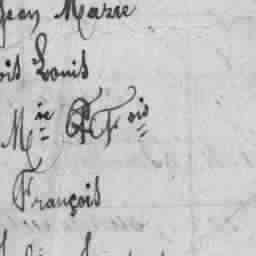 Jean Marie
ois Louis
Mie Fois
François